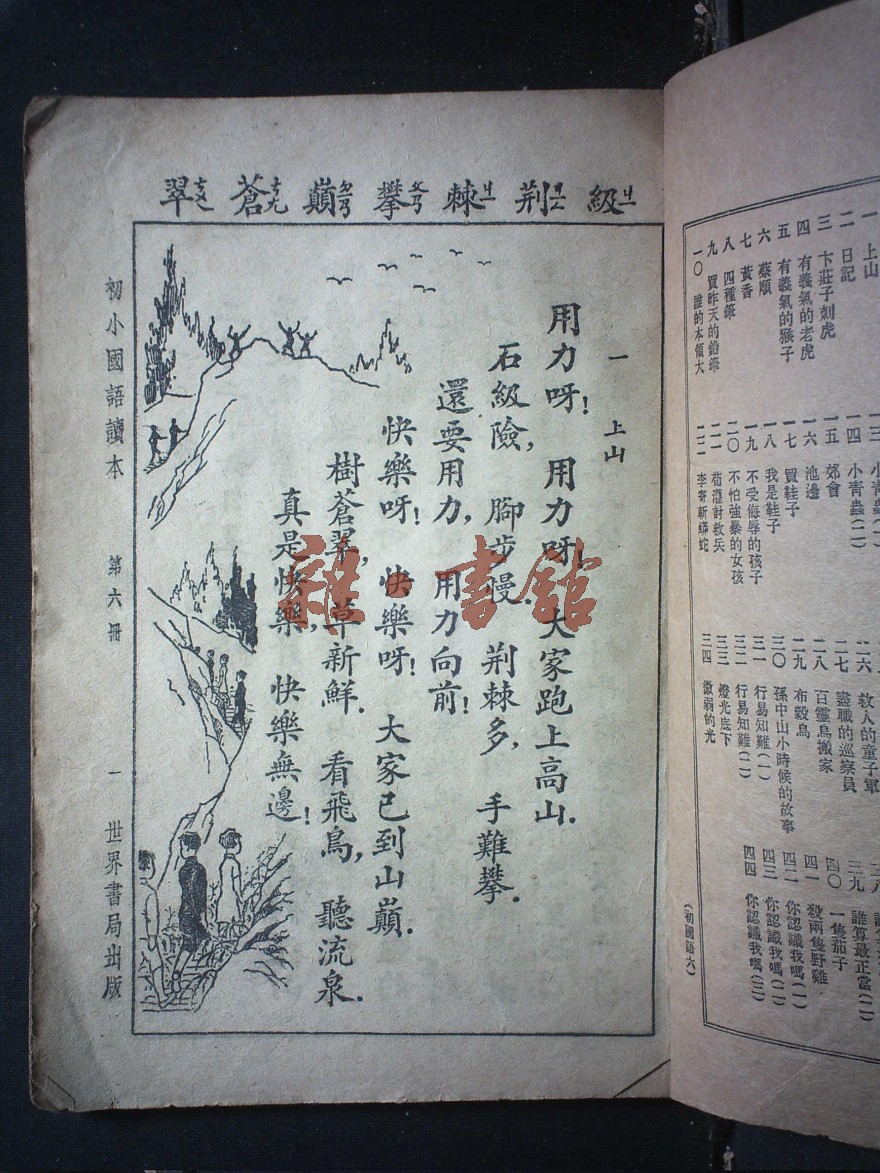 一 上山
二 日記
三 卞莊子刺虎
四 有義氣的老虎
五 有義氣的猴子
六 蔡順
七 黃香
八 四種筆
九 買昨天的鉛筆
一〇 誰的本領大
一三 小青蟲(一)
一四 小青蟲(二)
一五 郊會
一六 池邊
一七 買鞋子
一八 我是鞋子
一九 不受侮辱的孩子
二〇 不怕強暴的女孩
二一 荀灌討救兵
二二 李寄斬蟒蛇
二六 救人的童子軍
二七 盡職的巡察員
二八 百靈鳥搬家
二九 布穀鳥
三〇 孫中山小時候的故事
三一 行易知難(一)
三二 行易知難(二)
三三 燈光底下
三四 微弱的光
三九 誰算最正當(二)
四〇 一隻茄子
四一 殺兩隻野雞
四二 你認識我嗎(一)
四三 你認識我嗎(二)
四四 你認識我嗎(三)
(初國語六)
級ㄐㄧ 荆ㄐㄧㄥ 棘ㄐㄧ 攀ㄆㄢ 巔ㄉㄧㄢ 蒼ㄘㄤ 翠ㄘㄨㄟ
一 上山
用力呀! 用力呀! 大家跑上高山.
石級險, 腳步慢. 荆棘多, 手難攀.
還要用力, 用力向前!
快樂呀! 快樂呀! 大家已到山巔.
樹蒼翠, 草新鮮. 看飛鳥, 聽流泉.
真是快樂, 快樂無邊!
初小國語讀本 第六冊 一 世界書局出版
雜·書館